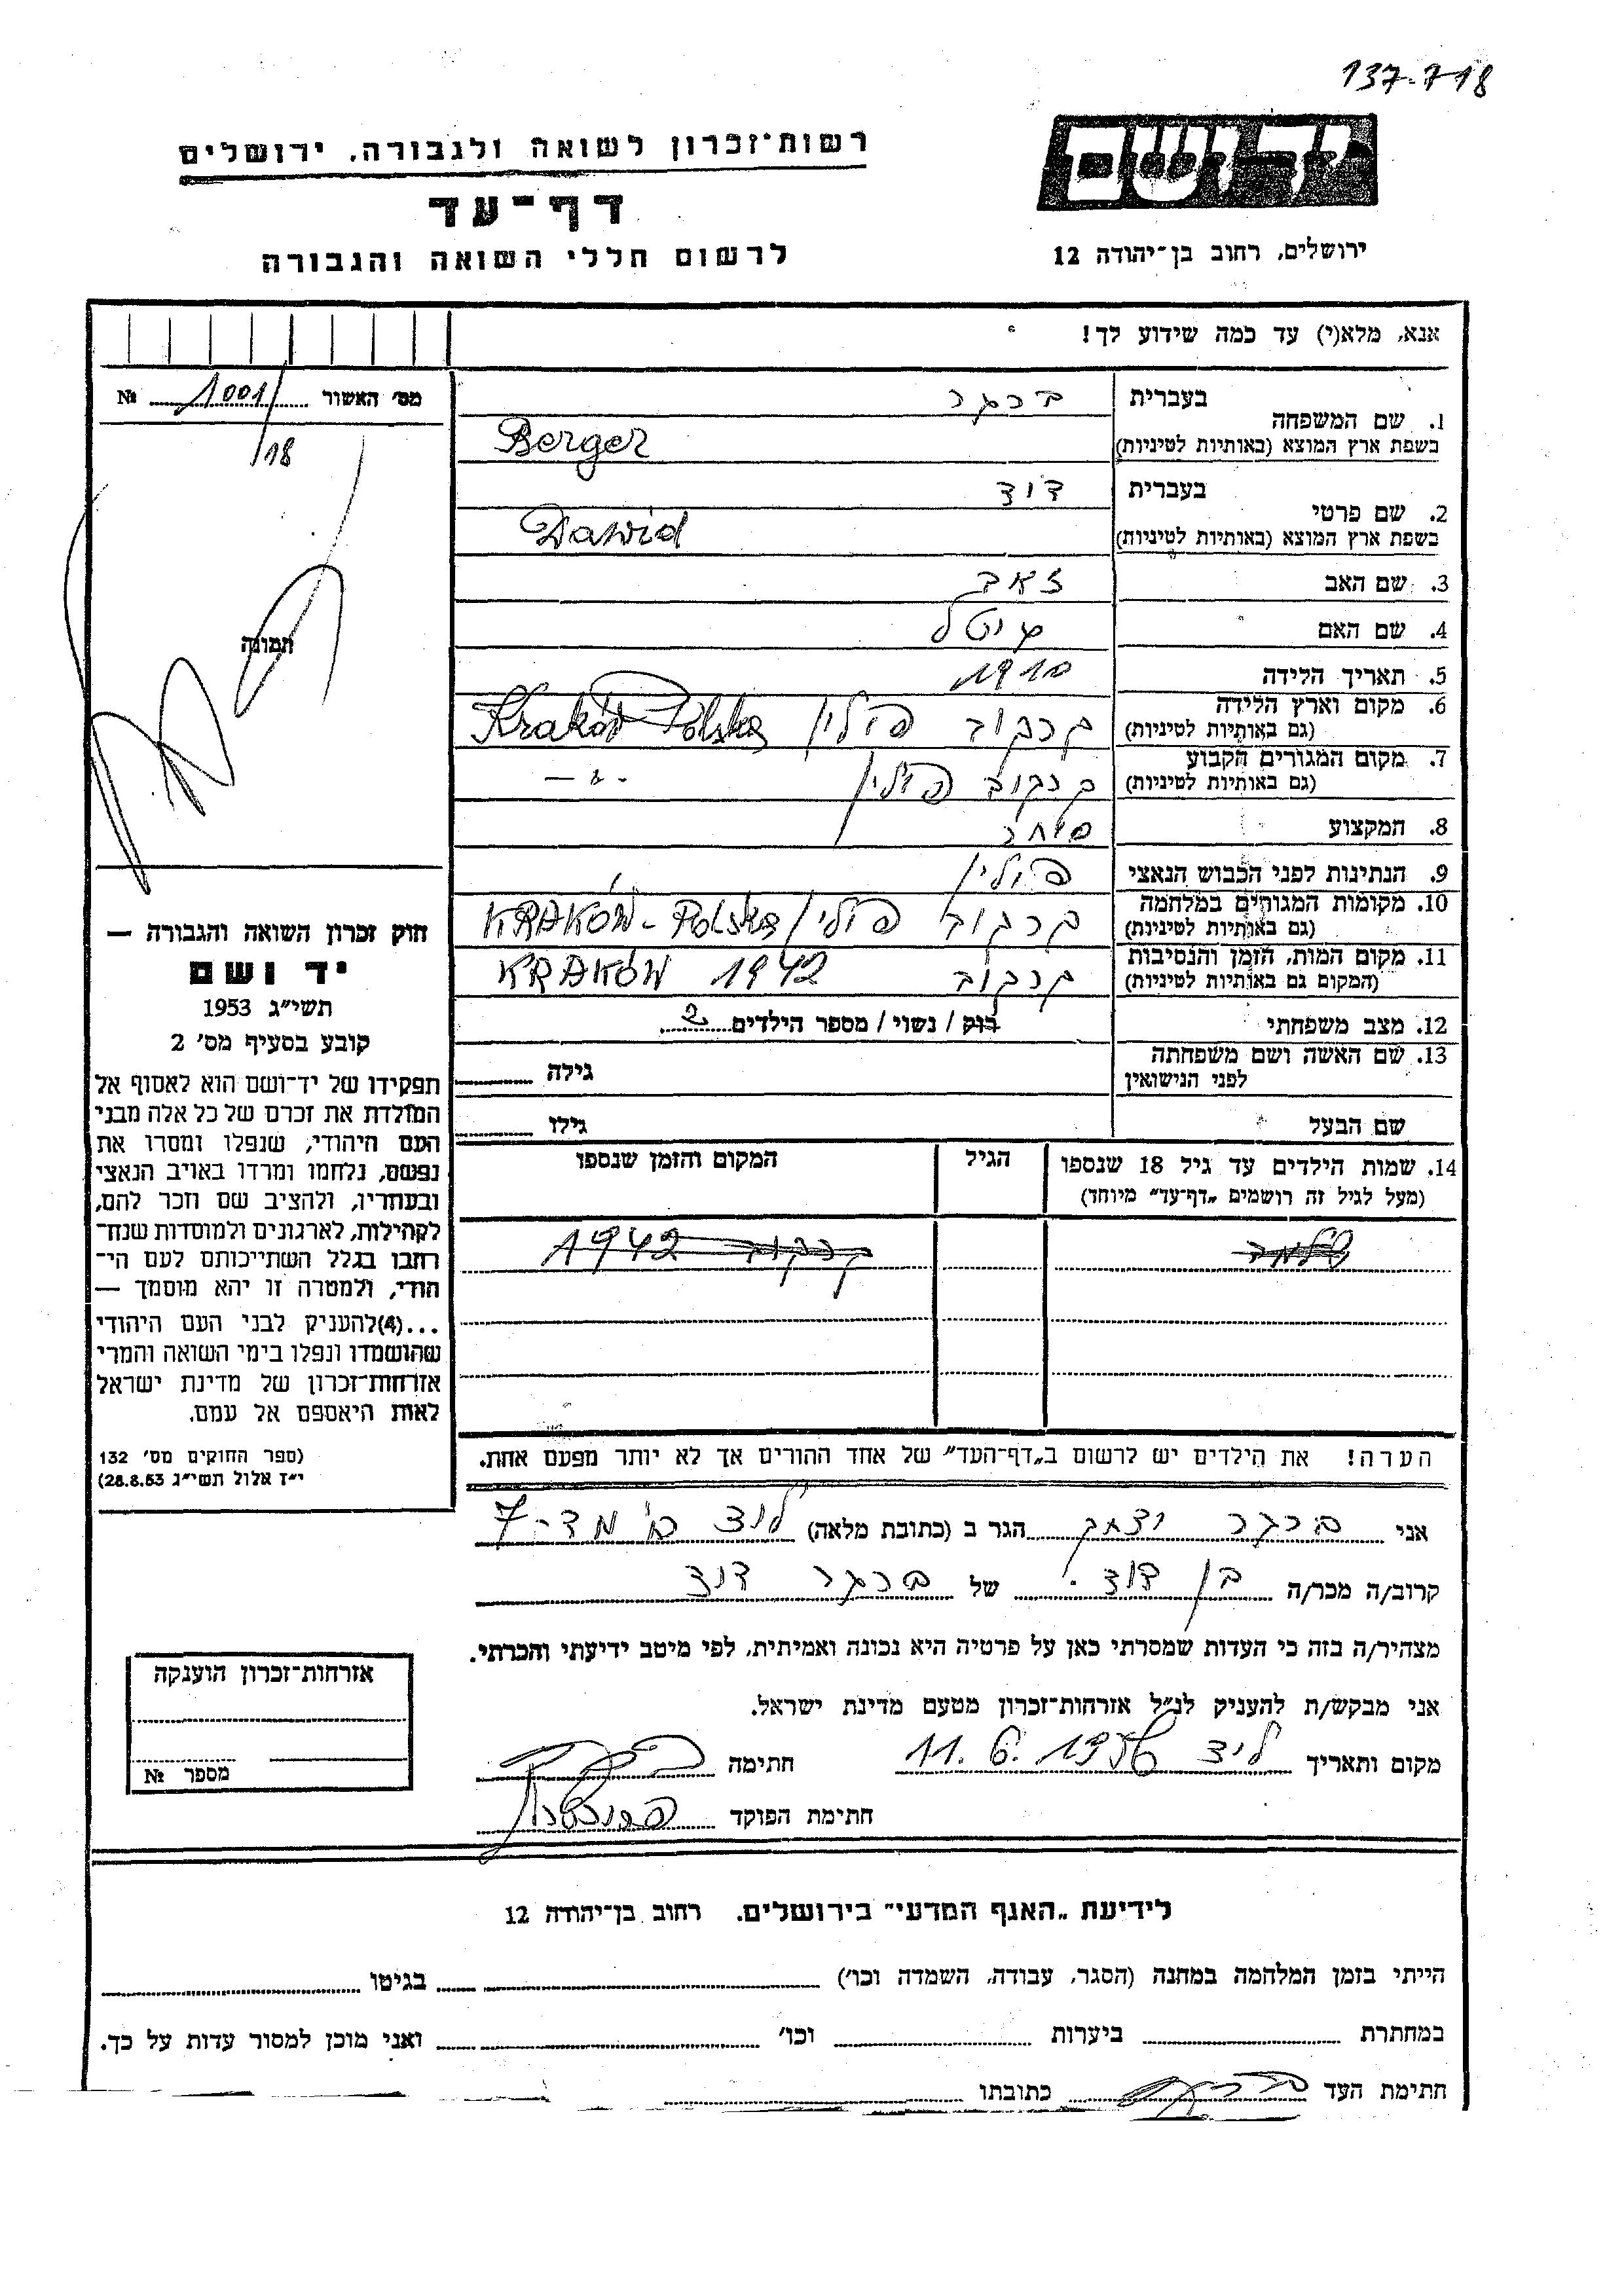 137-718
יד ושם
ירושלים, רחוב בן־יהודה 12
רשות־זכרון לשואה ולגבורה, ירושלים
דף־עד
לרשום חללי השואה והגבורה
אנא, מלא(י) עד כמה שידוע לך!
מס׳ האשור 1001/ №
/18
תמונה
1. שם המשפחה בעברית ברגר
בשפת ארץ המוצא (באותיות לטיניות) Berger
2. שם פרטי בעברית דוד
בשפת ארץ המוצא (באותיות לטיניות) Dawid
3. שם האב זאב
4. שם האם
5. תאריך הלידה 1910
6. מקום וארץ הלידה קרקוב פולין Kraków Polska
(גם באותיות לטיניות)
7. מקום המגורים הקבוע קרקוב פולין - " -
(גם באותיות לטיניות)
8. המקצוע סוחר
9. הנתינות לפני הכבוש הנאצי פולין
10. מקומות המגורים במלחמה קרקוב פולין KRAKÓW - Polska
(גם באותיות לטיניות)
11. מקום המות, הזמן והנסיבות קרקוב KRAKÓW 1942
(המקום גם באותיות לטיניות)
12. מצב משפחתי רווק / נשוי / מספר הילדים 2
13. שם האשה ושם משפחתה גילה
לפני הנישואין
שם הבעל גילו
14. שמות הילדים עד גיל 18 שנספו הגיל המקום והזמן שנספו
(מעל לגיל זה רושמים „דף־עד״ מיוחד)
קרקוב 1942
הערה! את הילדים יש לרשום ב„דף־העד״ של אחד ההורים אך לא יותר מפעם אחת.
חוק זכרון השואה והגבורה —
יד ושם
תשי״ג 1953
קובע בסעיף מס׳ 2
תפקידו של יד־ושם הוא לאסוף אל
המולדת את זכרם של כל אלה מבני
העם היהודי, שנפלו ומסרו את
נפשם, נלחמו ומרדו באויב הנאצי
ובעוזריו, ולהציב שם וזכר להם,
לקהילות, לארגונים ולמוסדות שנח־
רבו בגלל השתייכותם לעם הי־
הודי, ולמטרה זו יהא מוסמך —
...(4)להעניק לבני העם היהודי
שהושמדו ונפלו בימי השואה והמרי
אזרחות־זכרון של מדינת ישראל
לאות היאספם אל עמם.
(ספר החוקים מס׳ 132
י״ז אלול תשי״ג 28.8.53)
אני ברגר יצחק הגר ב (כתובת מלאה) לוד
קרוב/ה מכר/ה בן דוד של ברגר דוד
מצהיר/ה בזה כי העדות שמסרתי כאן על פרטיה היא נכונה ואמיתית, לפי מיטב ידיעתי והכרתי.
אני מבקש/ת להעניק לנ״ל אזרחות־זכרון מטעם מדינת ישראל.
מקום ותאריך לוד 11. 6. 1956 חתימה
חתימת הפוקד
אזרחות־זכרון הוענקה
מספר №
לידיעת „האגף המדעי״ בירושלים, רחוב בן־יהודה 12
הייתי בזמן המלחמה במחנה (הסגר, עבודה, השמדה וכו׳) בגיטו
במחתרת ביערות וכו׳ ואני מוכן למסור עדות על כך.
חתימת העד כתובתו